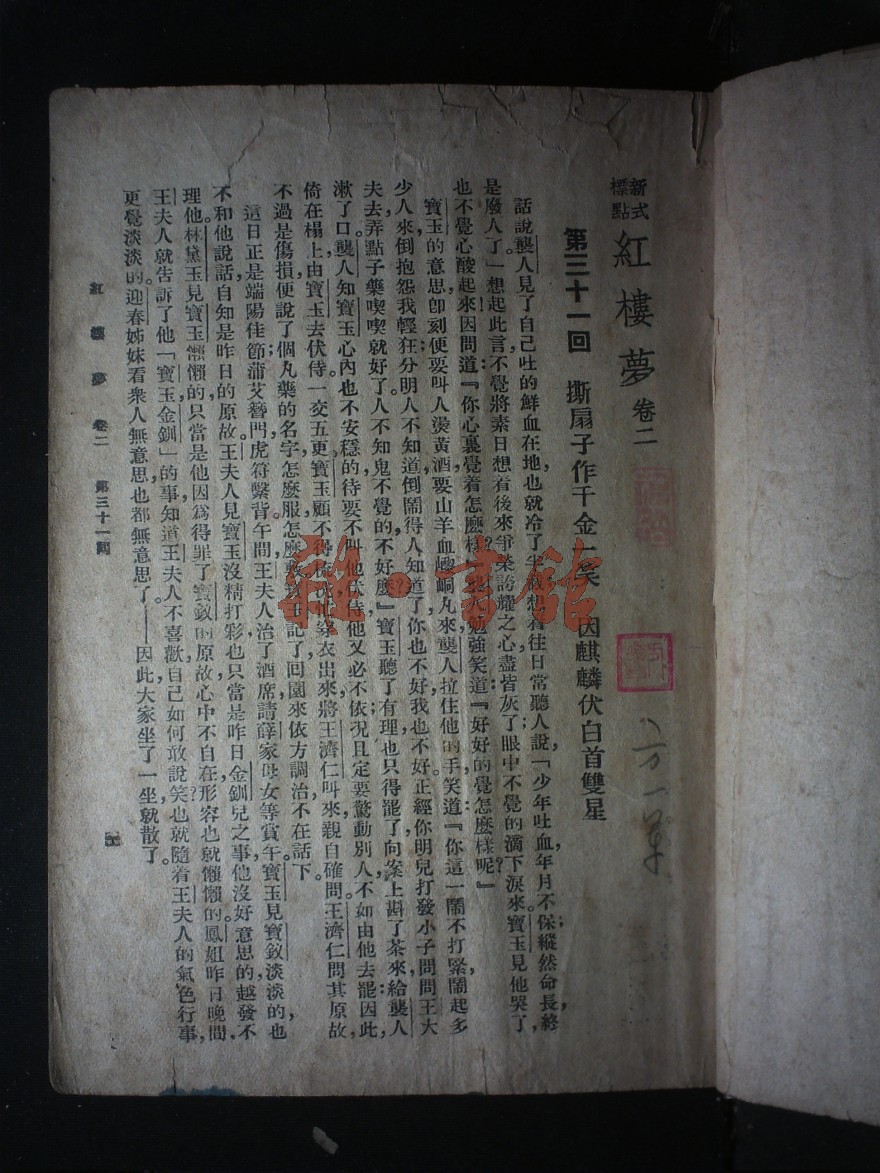 新式標點 紅樓夢 卷二
第三十一回 撕扇子作千金一笑 因麒麟伏白首雙星
話說襲人見了自己吐的鮮血在地，也就冷了半截。想着往日常聽人說，「少年吐血，年月不保；縱然命長，終
是廢人了」想起此言，不覺將素日想着後來爭榮誇耀之心，盡皆灰了；眼中不覺的滴下淚來。寶玉見他哭了，
也不覺心酸起來；因問道：『你心裏覺着怎麼樣？』襲人勉強笑道：『好好的覺怎麼樣呢？』
寶玉的意思，卽刻便要叫人燙黃酒，要山羊血嵧峒丸來。襲人拉住他的手，笑道：『你這一鬧不打緊，鬧起多
少人來，倒抱怨我輕狂，分明人不知道，倒鬧得人知道了，你也不好，我也不好。正經你明兒打發小子問問王大
夫去，弄點子藥喫喫就好了。人不知，鬼不覺的不好麼？』寶玉聽了有理，也只得罷了；向案上斟了茶來給襲人
漱了口。襲人知寶玉心內也不安穩的；待要不叫他伏侍，他又必不依；況且定要驚動別人，不如由他去罷；因此，
倚在榻上，由寶玉去伏侍。一交五更，寶玉顧不得梳洗，忙穿衣出來，將王濟仁叫來，親自確問。王濟仁問其原故，
不過是傷損，便說了個丸藥的名字，怎麼服，怎麼敷，寶玉記了，回園來依方調治，不在話下。
這日正是端陽佳節，蒲艾簪門，虎符繫背。午間，王夫人治了酒席，請薛家母女等賞午。寶玉見寶釵淡淡的，也
不和他說話，自知是昨日的原故。王夫人見寶玉沒精打彩，也只當是昨日金釧兒之事，他沒好意思的，越發不
理他。林黛玉見寶玉懶懶的，只當是他因爲得罪了寶釵的原故，心中不自在，形容也就懶懶的。鳳姐昨日晚間，
王夫人就告訴了他「寶玉金釧」的事，知道王夫人不喜歡，自己如何敢說笑，也就隨着王夫人的氣色行事，
更覺淡淡的。迎春姊妹看衆人無意思，也都無意思了——因此，大家坐了一坐，就散了。
紅樓夢 卷二 第三十一回
雜·書館